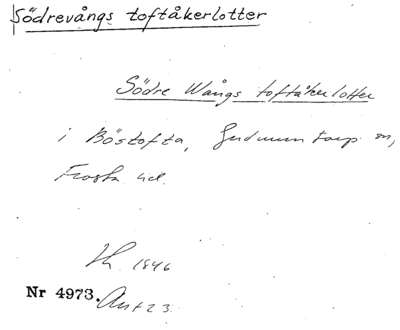 Södrevångs toftåkerlotter
Södre Wångs toftåkerlotter
i Böstofta, Gudmuntorp sn,
Frosta hd.
Lh. 1846
Nr 4973. Akt 23.